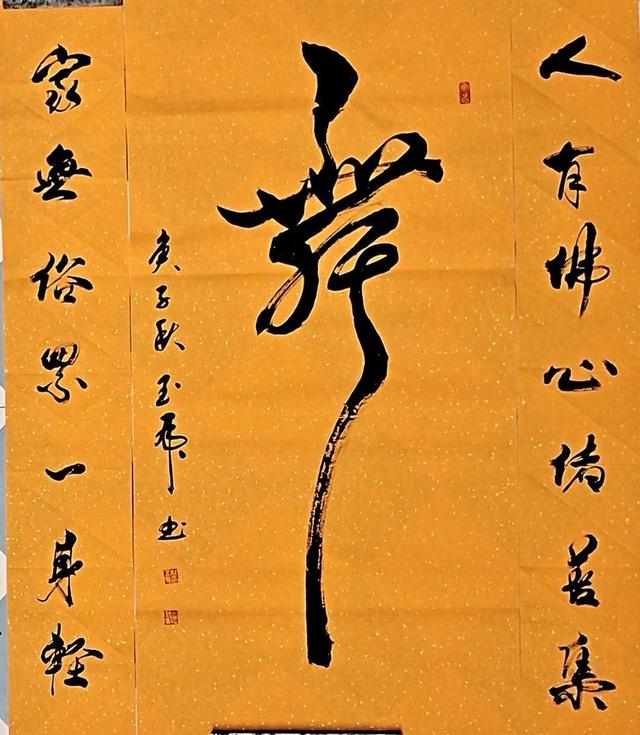 人有佛心诸善集
庚子秋玉虎书
家無俗累一身輕